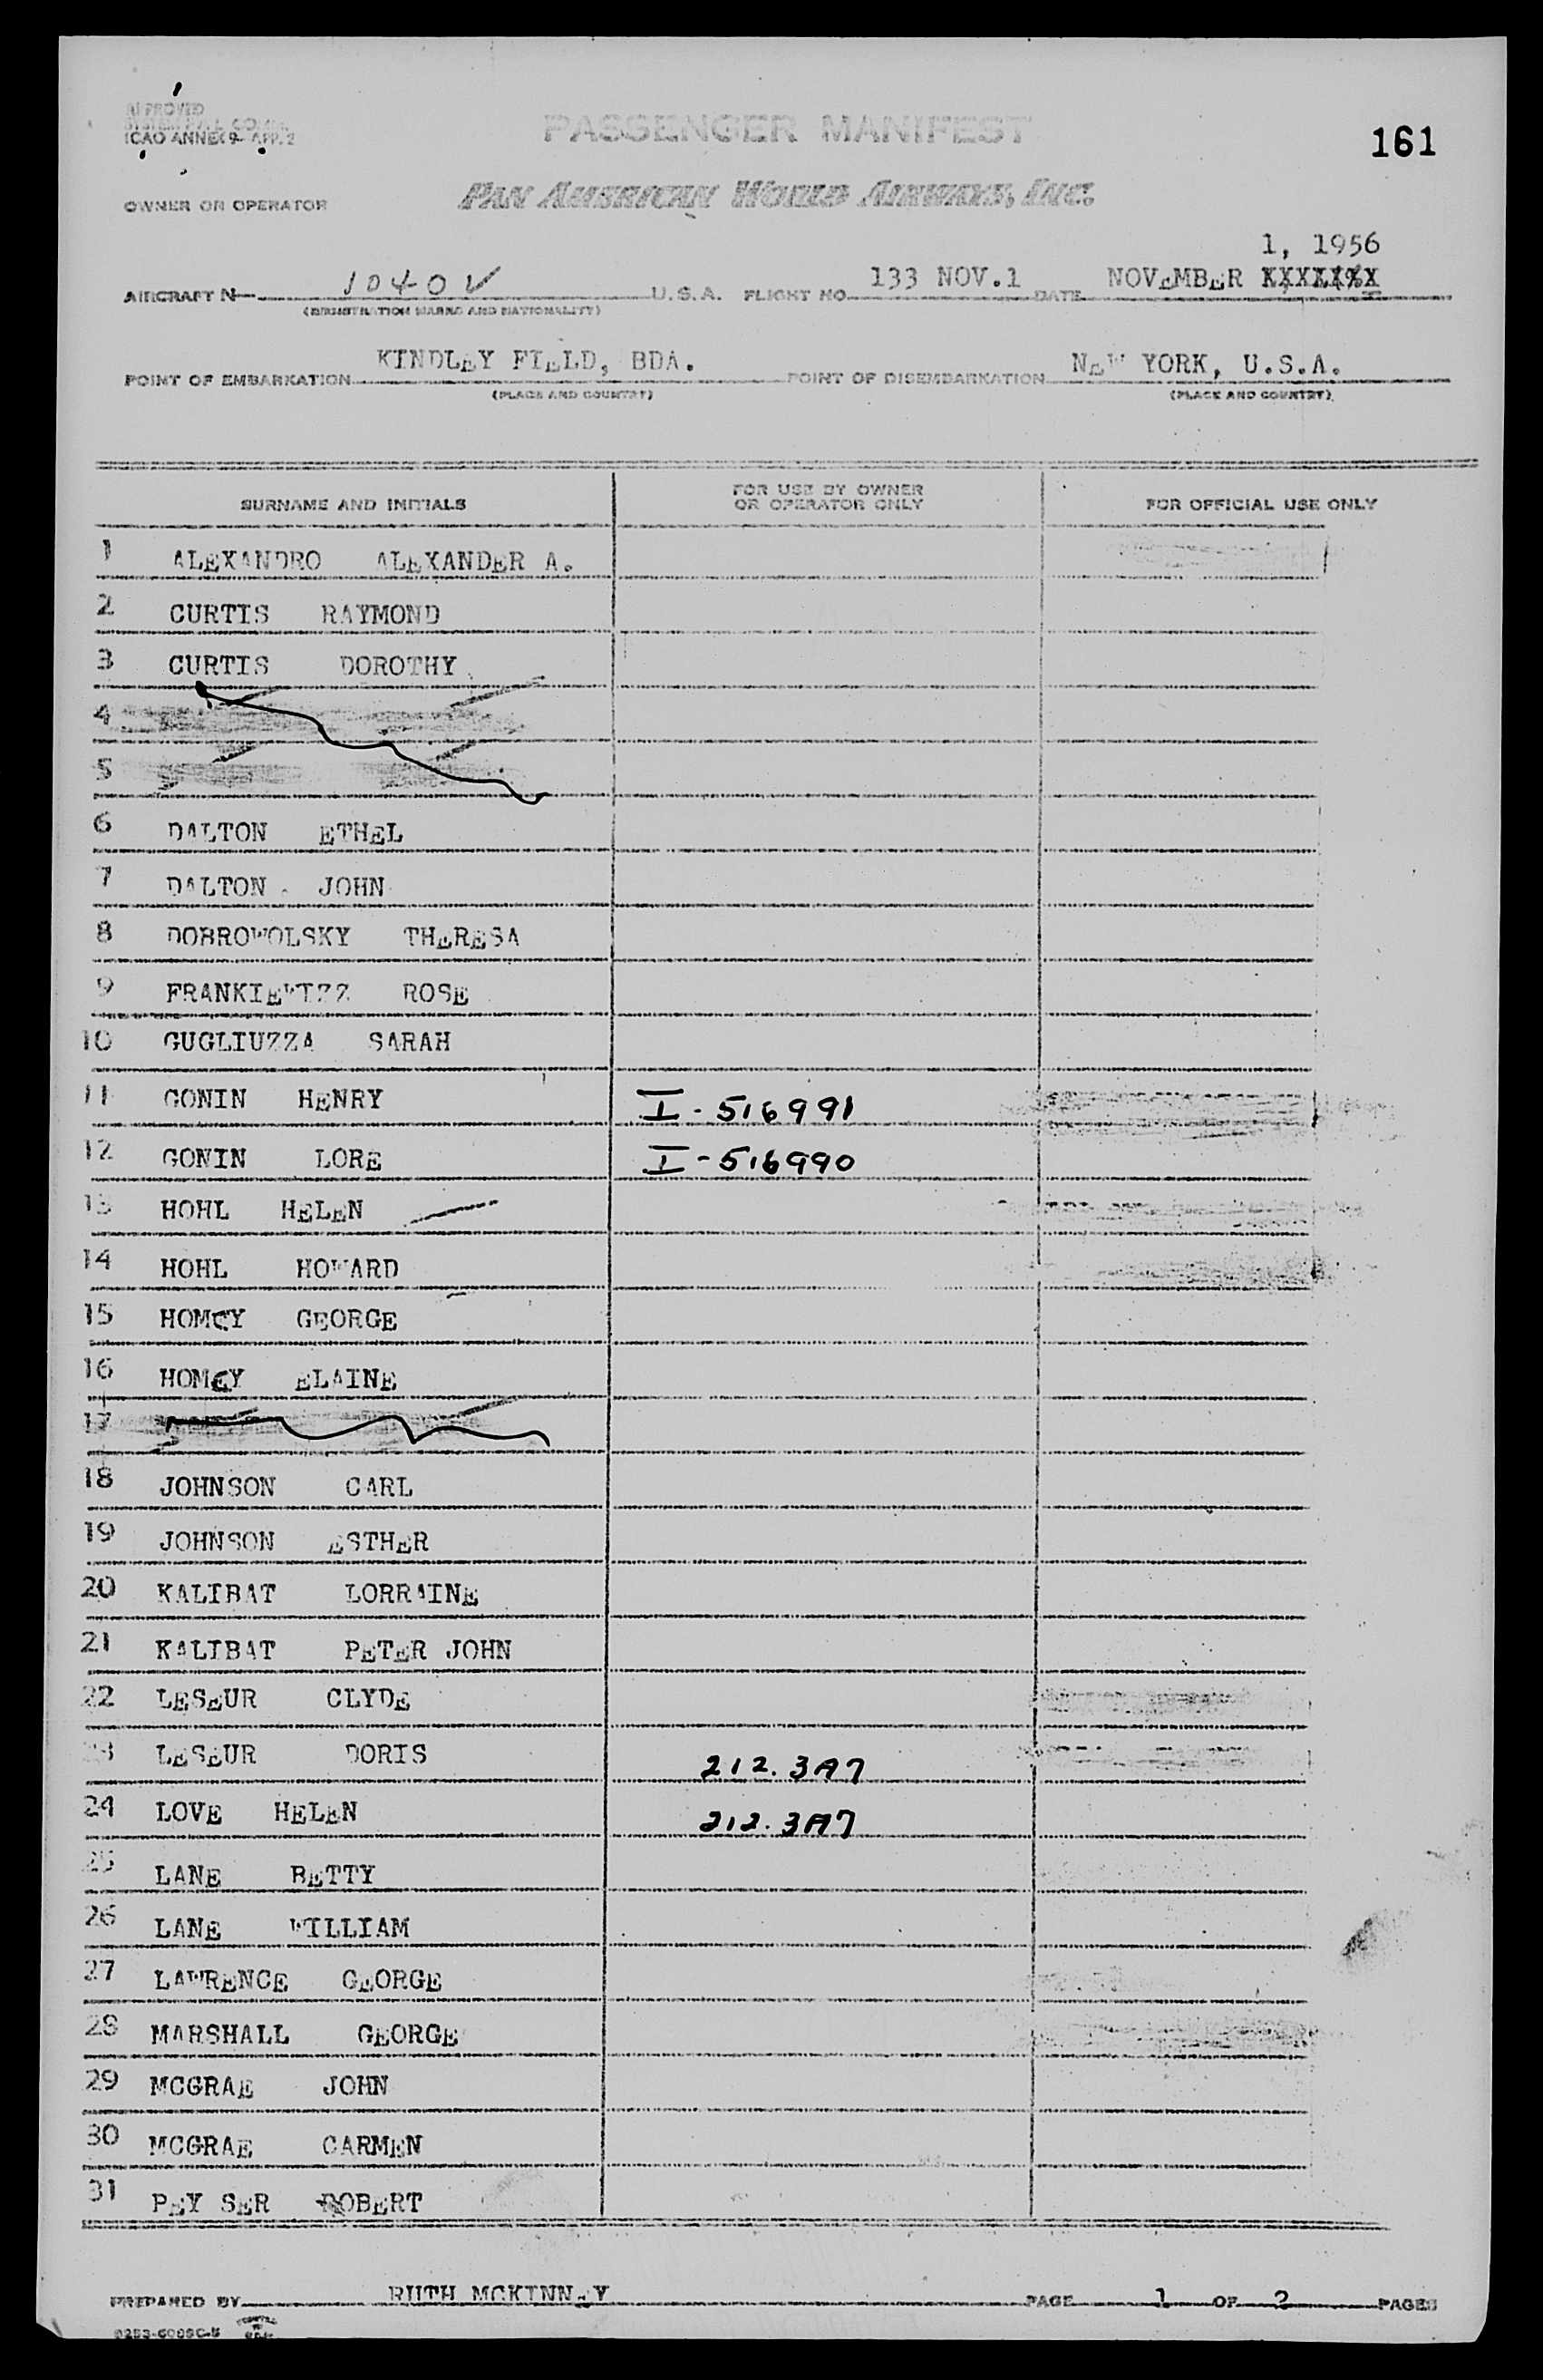 APPROVED
ICAO ANNEX 9 - APP. 2
PASSENGER MANIFEST
161
OWNER OR OPERATOR PAN AMERICAN WORLD AIRWAYS, INC.
1, 1956
AIRCRAFT N 1040V U.S.A. FLIGHT NO. 133 NOV.1 DATE NOVEMBER
(REGISTRATION MARKS AND NATIONALITY)
POINT OF EMBARKATION KINDLEY FIELD, BDA. POINT OF DISEMBARKATION NEW YORK, U.S.A.
(PLACE AND COUNTRY) (PLACE AND COUNTRY)
SURNAME AND INITIALS FOR USE BY OWNER OR OPERATOR ONLY FOR OFFICIAL USE ONLY
1 ALEXANDRO ALEXANDER A.
2 CURTIS RAYMOND
3 CURTIS DOROTHY
4
5
6 DALTON ETHEL
7 DALTON JOHN
8 DOBROWOLSKY THERESA
9 FRANKIEWIZZ ROSE
10 GUGLIUZZA SARAH
11 GONIN HENRY I-516991
12 GONIN LORE I-516990
13 HOHL HELEN
14 HOHL HOWARD
15 HOMCY GEORGE
16 HOMCY ELAINE
17
18 JOHNSON CARL
19 JOHNSON ESTHER
20 KALIBAT LORRAINE
21 KALIBAT PETER JOHN
22 LESEUR CLYDE
23 LESEUR DORIS 212.3A7
24 LOVE HELEN 212.3A7
25 LANE BETTY
26 LANE WILLIAM
27 LAWRENCE GEORGE
28 MARSHALL GEORGE
29 MCGRAE JOHN
30 MCGRAE CARMEN
31 PEY SER ROBERT
PREPARED BY RUTH MCKINNEY PAGE 1 OF 2 PAGES